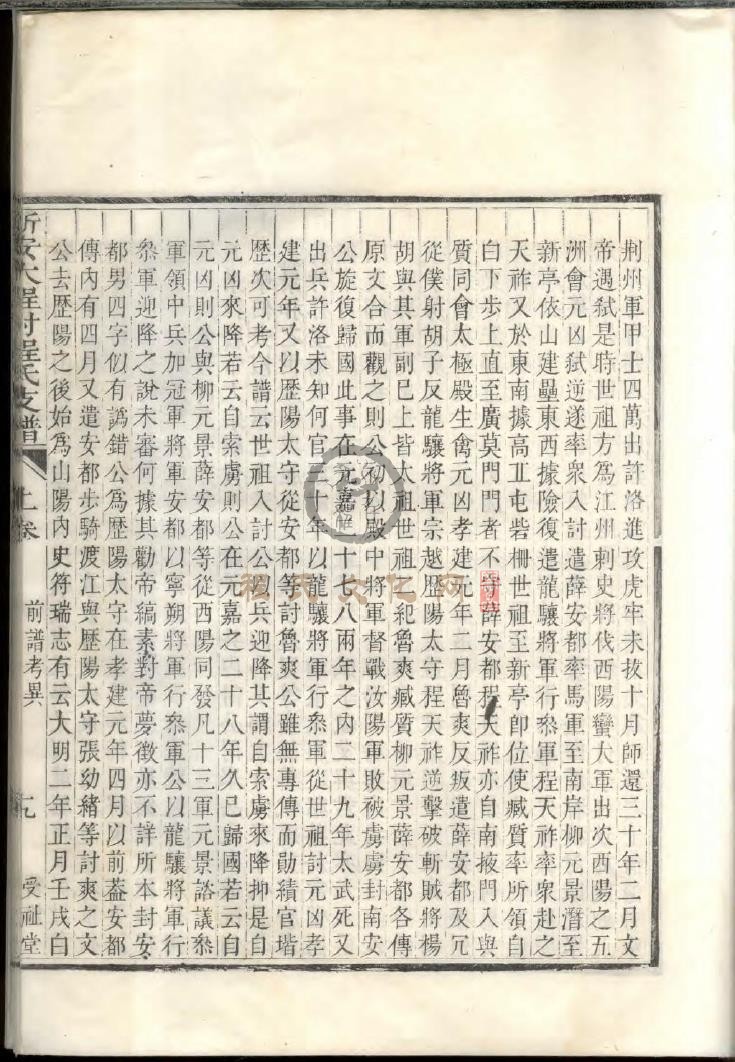 荆州軍甲士四萬出許洛進攻虎牢未抜十月師還三十年二月文
帝遇弑是時世祖方爲江州刺史將伐西陽蠻大軍出次西陽之五
洲會元凶弑逆遂率衆入討遣薛安都率馬軍至南岸柳元景潛至
新亭依山建壘東西據險復遣龍驤將軍行叅軍程天祚率衆赴之
天祚又於東南據高丘屯砦柵世祖至新亭卽位使臧質率所領自
白下步上直至廣莫門門者不守薛安都程天祚亦自南掖門入與
質同會太極殿生禽元凶孝建元年二月魯爽反叛遣薛安都及宂
從僕射胡子反龍驤將軍宗越歷陽太守程天祚逆擊破斬賊將楊
胡與其軍副巳上皆太祖世祖二紀魯爽臧質柳元景薛安都各傳
原文合而觀之則公初以殿中將軍督戰汝陽軍敗被虜虜封南安
公旋復歸國此事在元嘉二十七八兩年之内二十九年太武死又
出兵許洛未知何官三十年以龍驤將軍行叅軍從世祖討元凶孝
建元年又以歷陽太守從安都等討魯爽公雖無專傳而勛績官堦
歷次可考今譜云世祖入討公以兵迎降其謂自索虜來降抑是自
元凶來降若云自索虜則公在元嘉之二十八年久已歸國若云自
元凶則公與柳元景薛安都等從西陽同發凡十三軍元景諮議叅
軍領中兵加冠軍將軍安都以寧朔將軍行叅軍公以龍驤將軍行
叅軍迎降之說未審何據其勸帝縞素對帝夢徵亦不詳所本封安
都男四字似有譌錯公爲歷陽太守在孝建元年四月以前葢安都
傳内有四月又遣安都步騎渡江與歷陽太守張幼緒等討爽之文
公去歷陽之後始爲山陽内史符瑞志有云大明二年正月壬戌白
新安大程村程氏支譜
上卷
前譜考異
九
受祉堂
程氏文化网